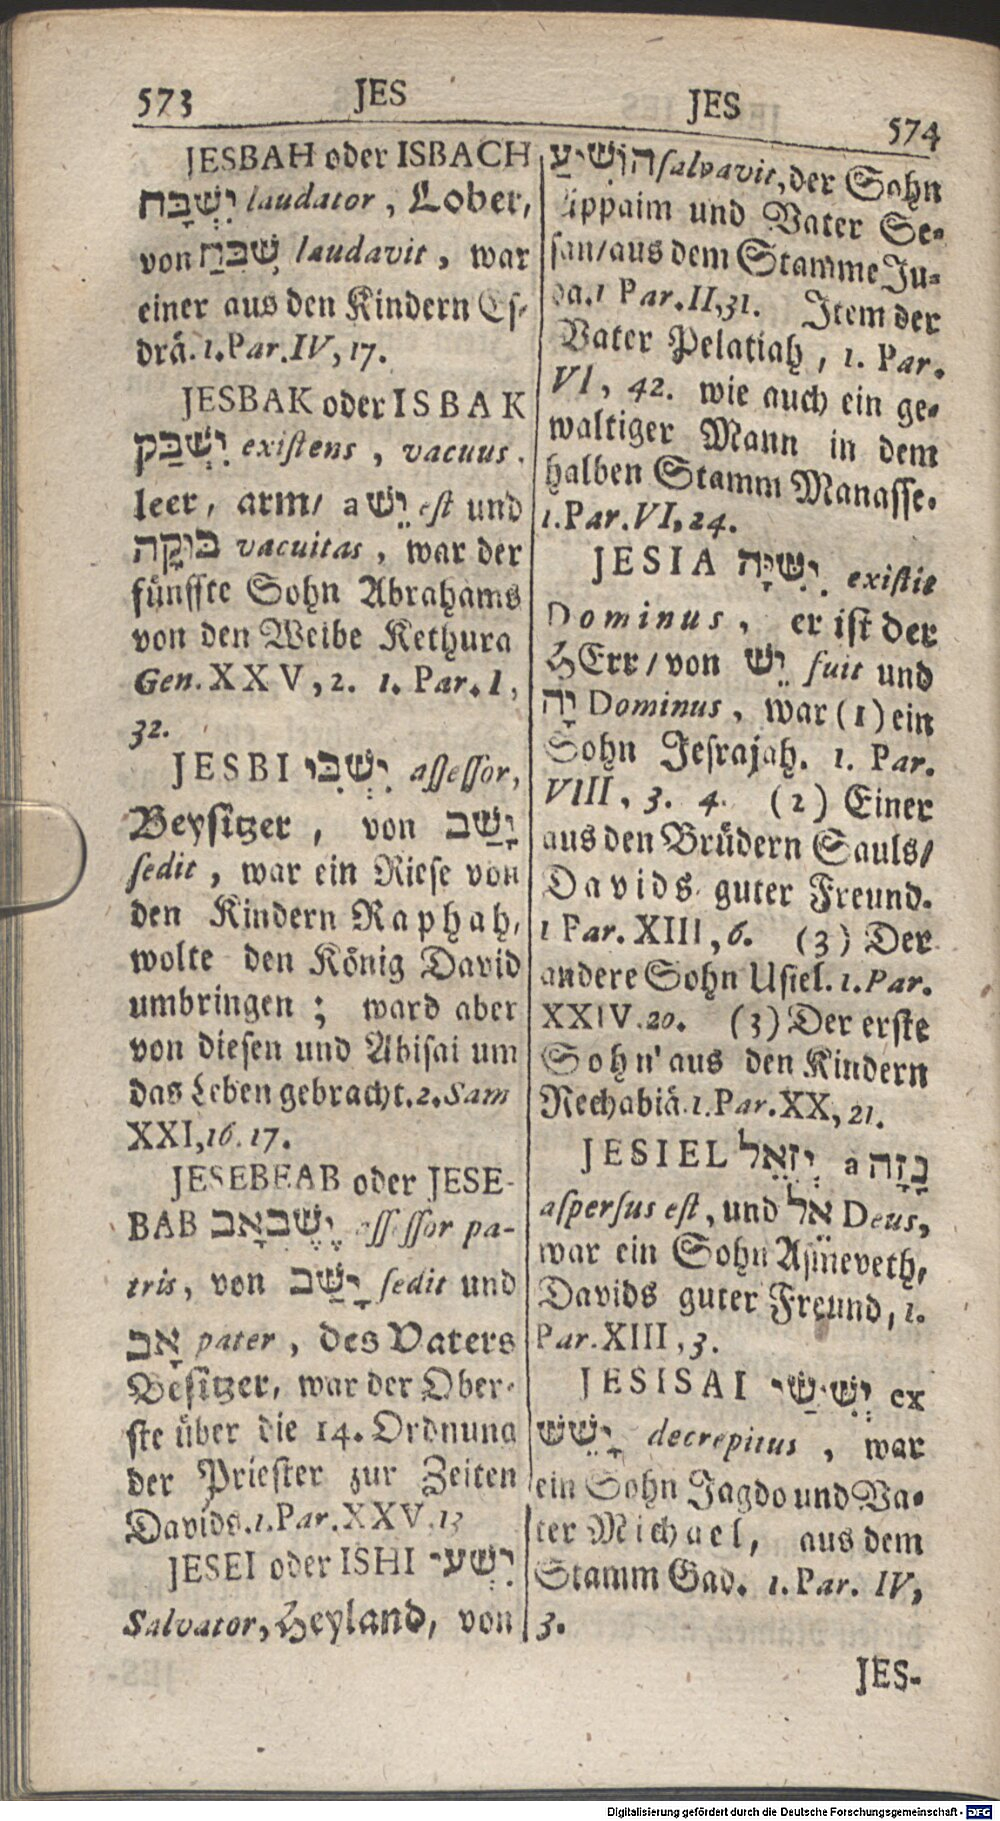 573 JES
JESBAH oder ISBACH
יִשְׁבָּח laudator, Lober,
von שִׁבַּח laudavit, war
einer aus den Kindern Es-
drä. 1. Par. IV, 17.
JESBAK oder ISBAK
יִשְׁבַּק existens, vacuus.
leer, arm/ a יֵשׁ est und
בּוּקָה vacuitas, war der
fünffte Sohn Abrahams
von den Weibe Kethura
Gen. XXV, 2. 1. Par. I,
32.
JESBI יִשְׁבִּי assessor,
Beysitzer, von יָשַׁב
sedit, war ein Riese von
den Kindern Raphah,
wolte den König David
umbringen; ward aber
von diesen und Abisai um
das Leben gebracht. 2. Sam
XXI, 16. 17.
JESEBEAB oder JESE-
BAB יֶשֶׁבְאָב assessor pa-
tris, von יָשַׁב sedit und
אָב pater, des Vaters
Besitzer, war der Ober-
ste über die 14. Ordnung
der Priester zur Zeiten
Davids. 1. Par. XXV. 13
JESEI oder ISHI יִשְׁעִי
Salvator, Heyland, von
JES 574
הוֹשִׁיעַ salvavit, der Sohn
Appaim und Vater Se-
san/ aus dem Stamme Ju-
da. 1 Par. II, 31. Item der
Vater Pelatiah, 1. Par.
VI, 42. wie auch ein ge-
waltiger Mann in dem
halben Stamm Manasse.
1. Par. VI, 24.
JESIA יִשִּׁיָּה existit
Dominus, er ist der
HErr/ von יֵשׁ fuit und
יָה Dominus, war (1) ein
Sohn Jesrajah. 1. Par.
VIII, 3. 4. (2) Einer
aus den Brüdern Sauls/
Davids guter Freund.
1 Par. XIII, 6. (3) Der
andere Sohn Usiel. 1. Par.
XXIV. 20. (3) Der erste
Sohn aus den Kindern
Rechabiä. 1. Par. XX, 21.
JESIEL יְזִאֵל a נָזָה
aspersus est, und אֵל Deus,
war ein Sohn Asmeveth,
Davids guter Freund, 1.
Par. XIII, 3.
JESISAI יְשִׁישַׁי ex
יָשֵׁשׁ decrepitus, war
ein Sohn Jagdo und Va-
ter Michael, aus dem
Stamm Gad. 1. Par. IV,
3.
JES-
Digitalisierung gefördert durch die Deutsche Forschungsgemeinschaft - DFG